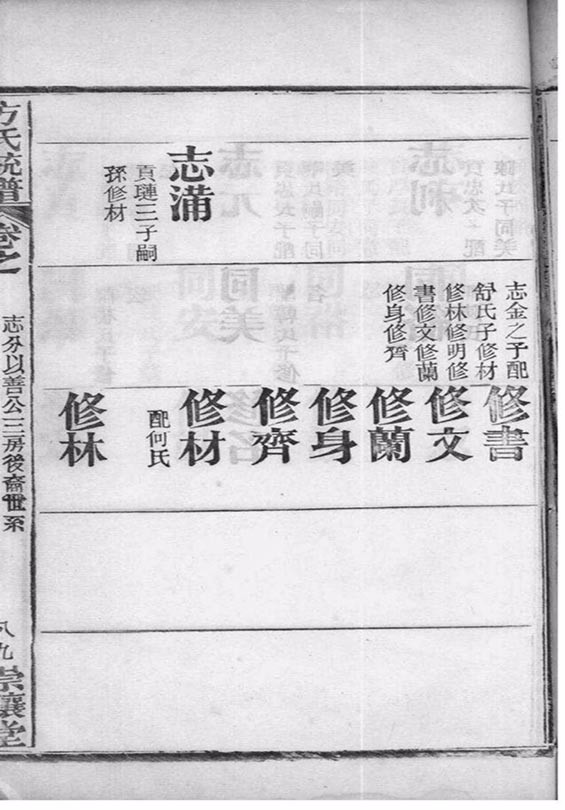 志蒲
貢璉三子嗣
孫修材
志金之子配
舒氏子修材
修林修明修
書修文修蘭
修身修齊
修書
修文
修蘭
修身
修齊
修材
配何氏
修林
方氏統譜
卷之
志分以善公三房後裔世系
八九
崇讓堂